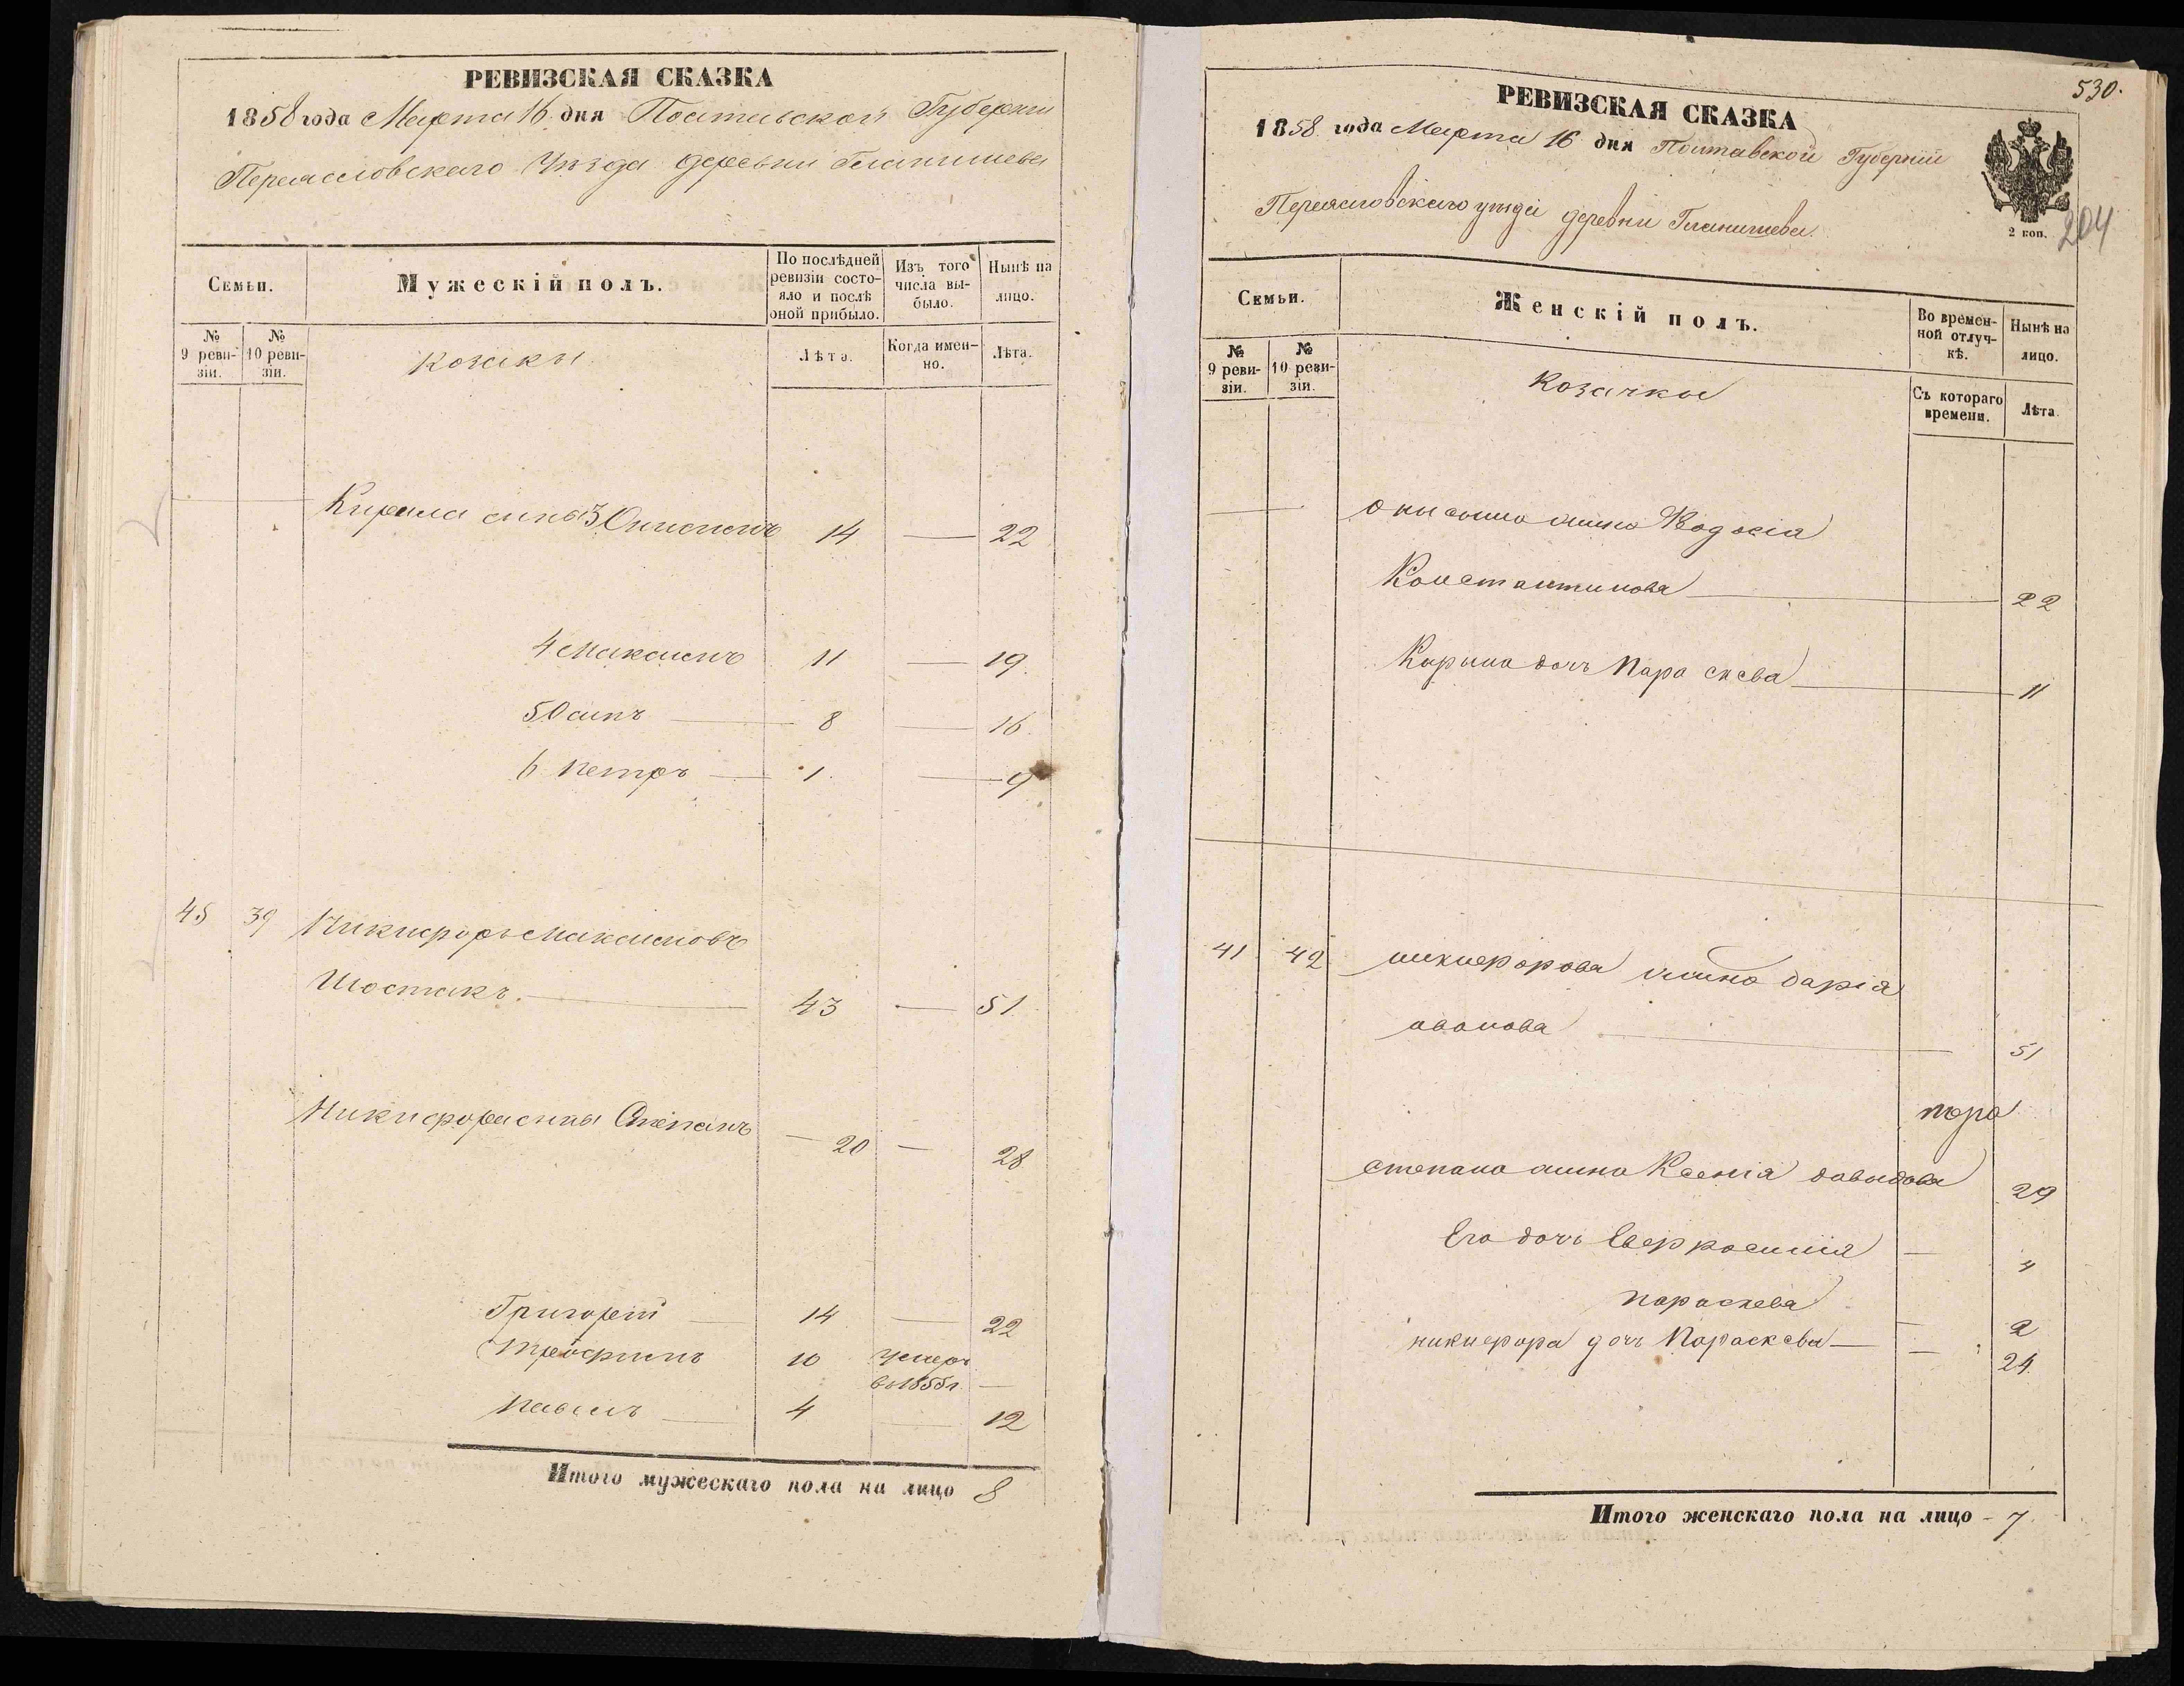 РЕВИЗСКАЯ СКАЗКА
1858 года Марта 16 дня Полтавской Губернии
Переясловскаго Уѣзда деревни Гланишева
Семьи.
Мужескій полъ.
По послѣдней ревизіи состояло и послѣ оной прибыло.
Изъ того числа выбыло.
Нынѣ на лицо.
№ 9 ревизіи.
№ 10 ревизіи.
Козаки
Лѣта.
Когда именно.
Лѣта.
Кирила сины 3 Онисимъ 14 — 22
4 Максимъ 11 — 19.
5 Осипъ — 8 — 16.
6 Петръ — 1. — 9
45 39 Никифоръ Максимовъ
Шостакъ. — 43 — 51
Никифора сины Степанъ — 20 — 28
Григорій — 14 — 22
Трофимъ 10 умеръ
въ 1855 г. —
Павелъ — 4 — 12
Итого мужескаго пола на лицо 8
530.
РЕВИЗСКАЯ СКАЗКА
1858 года Марта 16 дня Полтавской Губерніи
Переясловскаго уѣзда деревни Гланишева.
2 коп.
204
Семьи.
Женскій полъ.
Во временной отлучкѣ.
Нынѣ на лицо.
№ 9 ревизіи.
№ 10 ревизіи.
Козачки
Съ котораго времени.
Лѣта.
Онисыма жина Водосія
Константинова — 22
Кирила дочъ Параскева — 11
41 42 никифорова жина дарія
ивонова — 51
Степана жина Ксенія давыдова 29
Его дочъ Евфросинія — 4
Параскева — 2
никифора дочъ Параскева — — 24
Итого женскаго пола на лицо - 7.